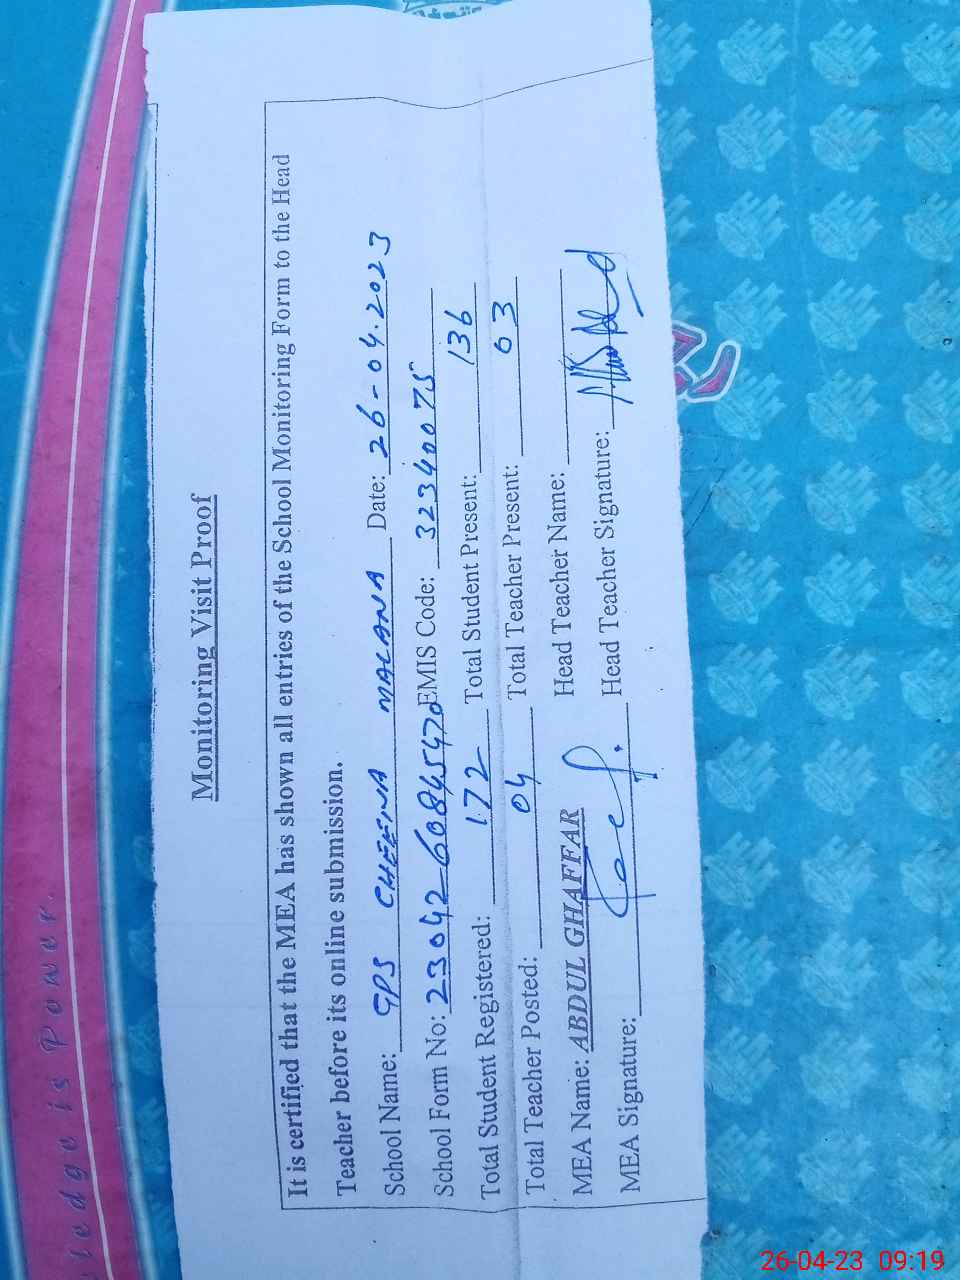 Monitoring Visit Proof
It is certified that the MEA has shown all entries of the School Monitoring Form to the Head
Teacher before its online submission.
School Name: GPS CHEENA MALANA Date: 26-04.2023
School Form No: 230426084547d EMIS Code: 32340075
Total Student Registered: 172 Total Student Present: 136
Total Teacher Posted: 04 Total Teacher Present: 03
MEA Name: ABDUL GHAFFAR Head Teacher Name:
MEA Signature: Head Teacher Signature:
ledge is Power.
26-04-23 09:19